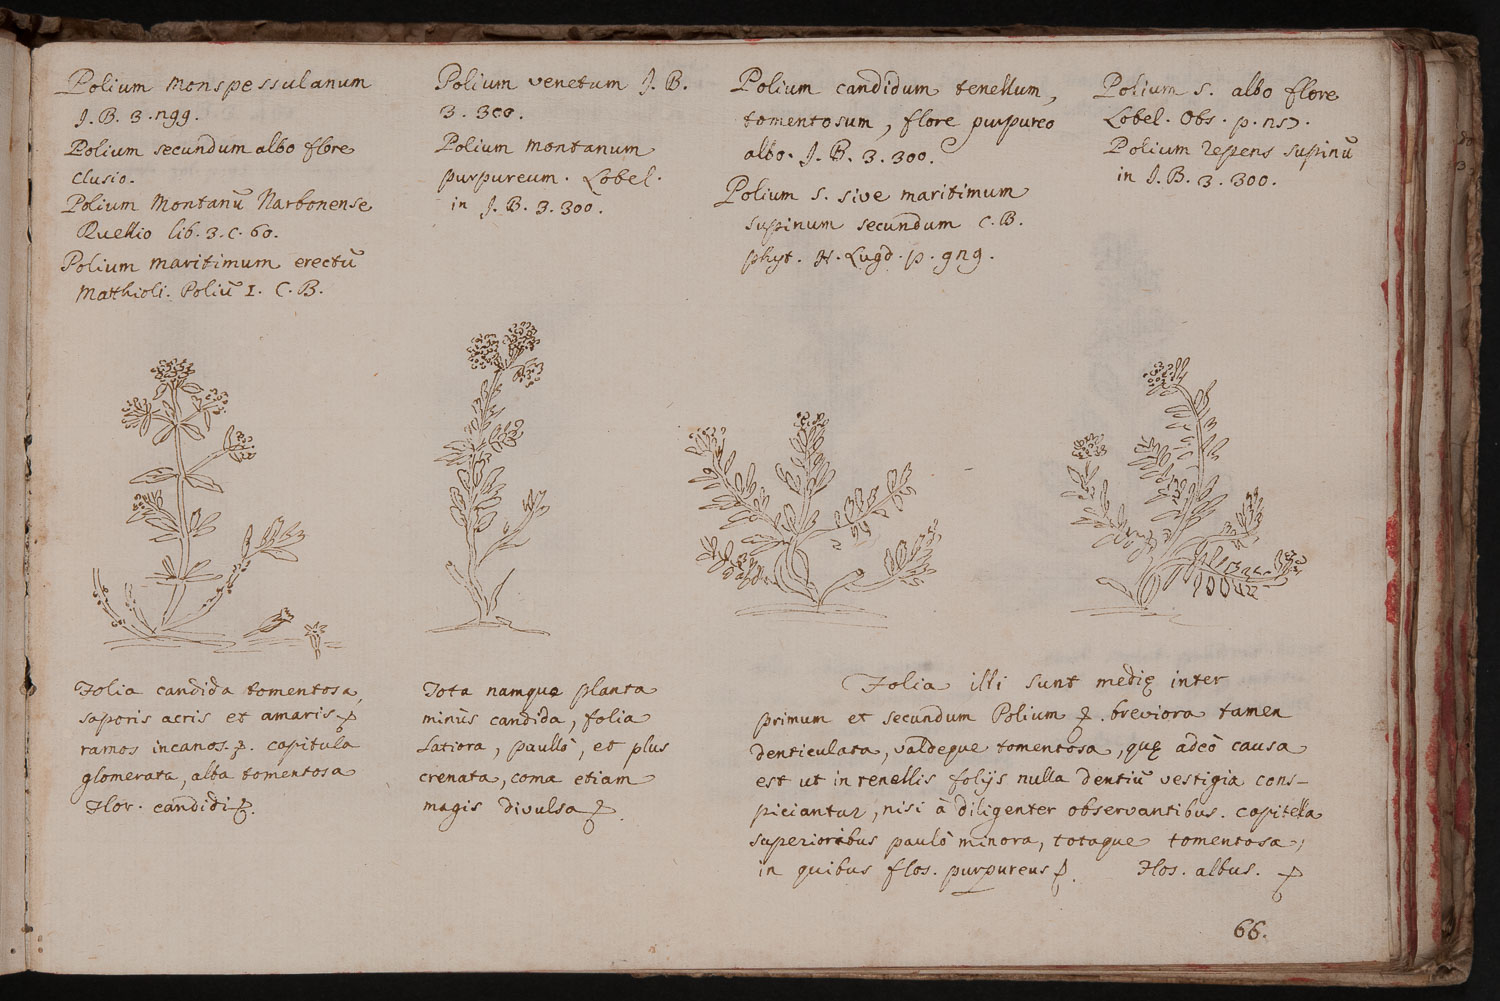 Polium monspessulanum
J. B. 3. 299.
Polium secundum albo flore
clusio.
Polium Montanū Narbonense
Ruellio lib. 3. c. 60.
Polium maritimum erectū
Matthioli. Poliū 1. C. B.
Polium venetum J. B.
3. 300.
Polium montanum
purpureum. Lobel.
in J. B. 3. 300.
Polium candidum tenellum,
tomentosum, flore purpureo
albo. J. B. 3. 300.
Polium s. sive maritimum
supinum secundum C. B.
phyt. H. Lugd. p. 929.
Polium s. albo flore
Lobel. Obs. p. 257.
Polium repens supinū
in J. B. 3. 300.
Folia candida tomentosa,
saporis acris et amaris
ramos incanos. capitula
glomerata, alba tomentosa
Flor. candidi
Tota namque planta
minùs candida, folia
Latiora, paullò, et plus
crenata, coma etiam
magis divulsa
Folia illi sunt medię inter
primum et secundum Polium. breviora tamen
denticulata, valdeque tomentosa, quę adeò causa
est ut in tenellis folijs nulla dentiū vestigia cons-
piciantur, nisi à diligenter observantibus. capitella
superioribus paulò minora, totaque tomentosa,
in quibus flos. purpureus. Flos. albus.
66.